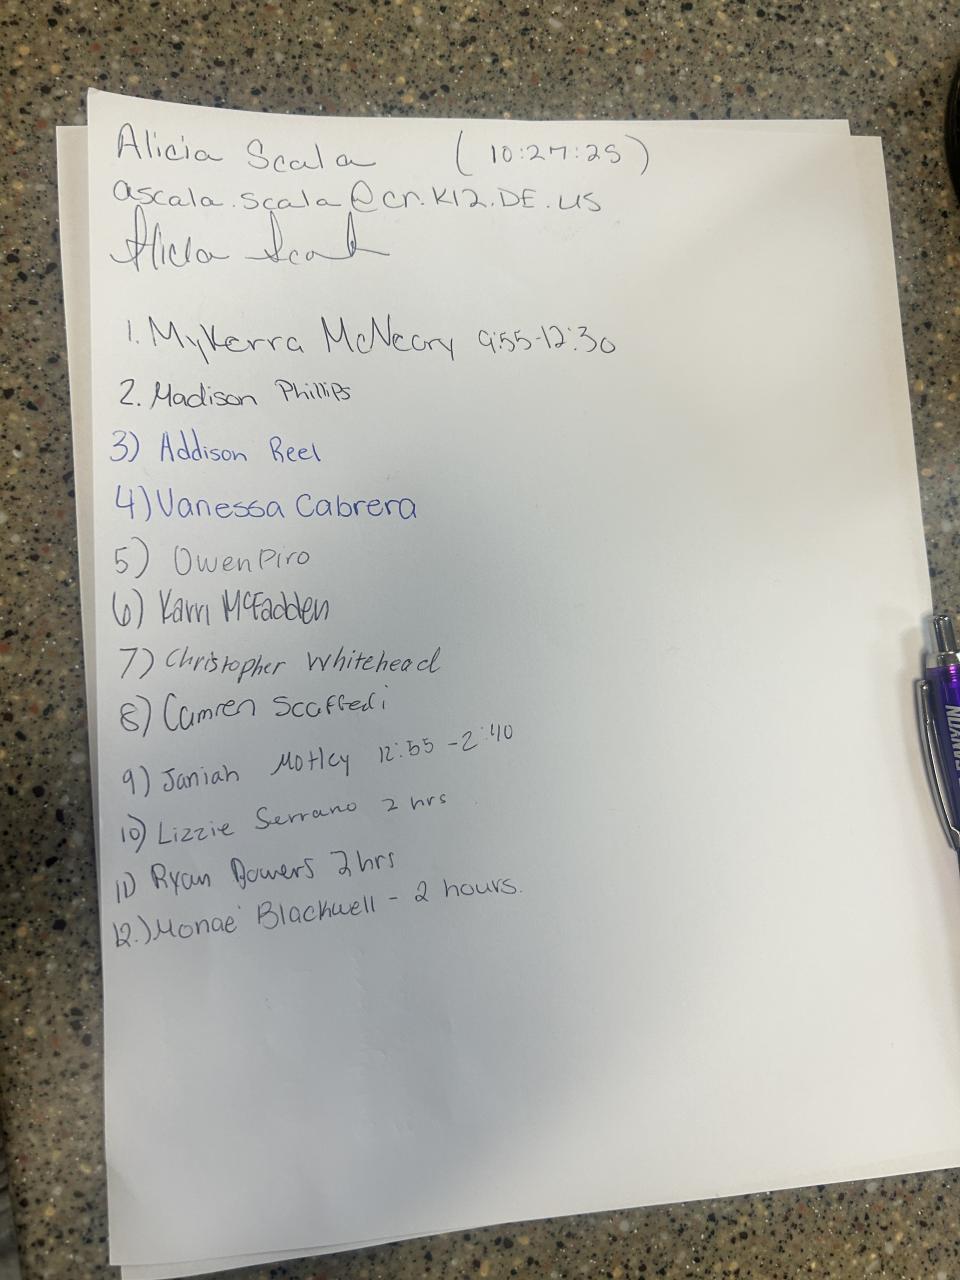 Alicia Scala (10:27:25)
ascala.scala@cr.K12.DE.US
Alicia Scala
1. MyKerra McNeary 9:55-12:30
2. Madison Phillips
3) Addison Reel
4) Vanessa Cabrera
5) Owen Piro
6) Karri McFadden
7) Christopher Whitehead
8) Camren Scaffedi
9) Janiah Motley 12:55-2:40
10) Lizzie Serrano 2 hrs
11) Ryan Bowers 2 hrs
12.) Monae' Blackwell - 2 hours.